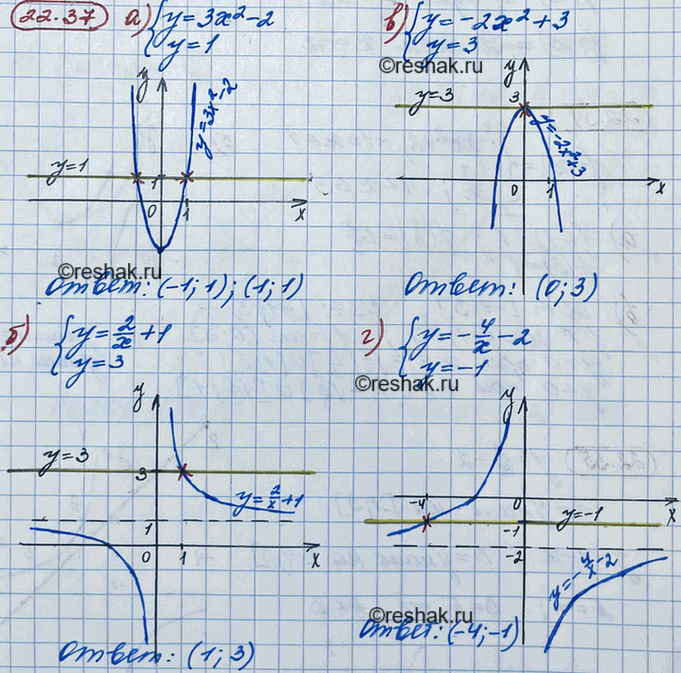 22.37 а) { y = 3x² - 2
y = 1
y
y = 3x² - 2
y = 1
1
0 1 x
©reshak.ru
Ответ: (-1; 1); (1; 1)
в) { y = -2x² + 3
y = 3
©reshak.ru
y
y = 3 3
y = -2x² + 3
0 1 x
©reshak.ru
Ответ: (0; 3)
б) { y = 2/x + 1
y = 3
y
y = 3
3
y = 2/x + 1
1
0 1 x
Ответ: (1; 3)
г) { y = -4/x - 2
y = -1
©reshak.ru
y
-4 0 x
y = -1
-1
-2
y = -4/x - 2
©reshak.ru
Ответ: (-4; -1)